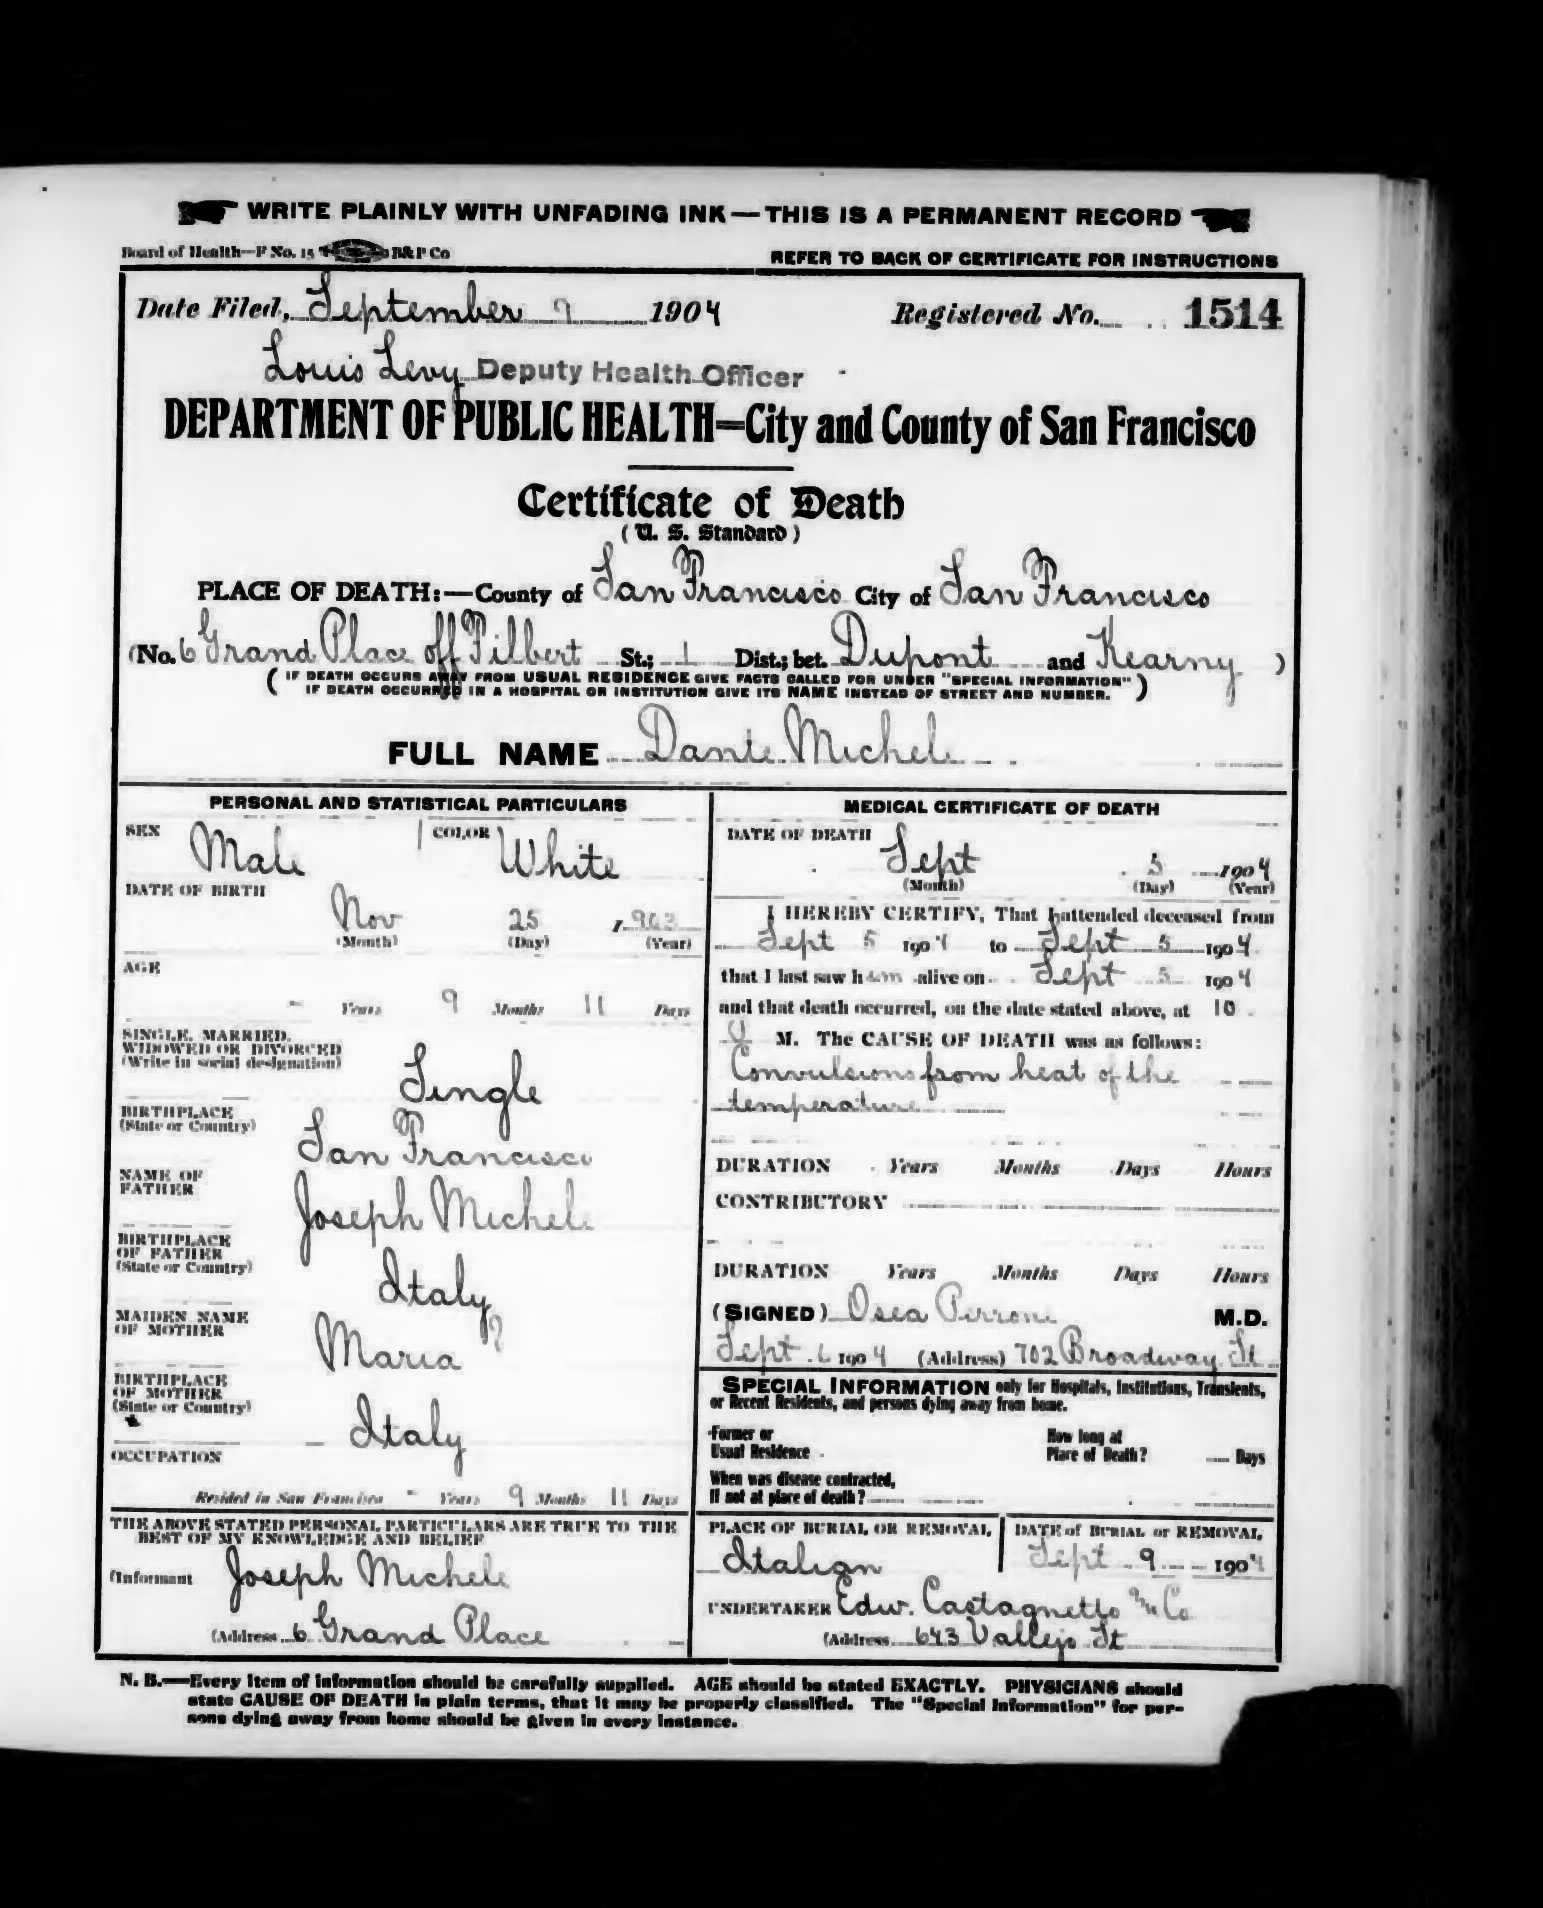 WRITE PLAINLY WITH UNFADING INK—THIS IS A PERMANENT RECORD
Board of Health—F No. 15 B&P Co
REFER TO BACK OF CERTIFICATE FOR INSTRUCTIONS
Date Filed, September 9 1904 Registered No. 1514
Louis Levy Deputy Health Officer
DEPARTMENT OF PUBLIC HEALTH—City and County of San Francisco
Certificate of Death
(U. S. Standard)
PLACE OF DEATH:—County of San Francisco City of San Francisco
(No. 6 Grand Place off Filbert St.; 1 Dist.; bet. Dupont and Kearny )
( IF DEATH OCCURS AWAY FROM USUAL RESIDENCE GIVE FACTS CALLED FOR UNDER "SPECIAL INFORMATION"
IF DEATH OCCURRED IN A HOSPITAL OR INSTITUTION GIVE ITS NAME INSTEAD OF STREET AND NUMBER. )
FULL NAME Dante Michele
PERSONAL AND STATISTICAL PARTICULARS
SEX Male COLOR White
DATE OF BIRTH
Nov 25 1903
(Month) (Day) (Year)
AGE
- Years 9 Months 11 Days
SINGLE, MARRIED,
WIDOWED OR DIVORCED
(Write in social designation)
Single
BIRTHPLACE
(State or Country)
San Francisco
NAME OF
FATHER
Joseph Michele
BIRTHPLACE
OF FATHER
(State or Country)
Italy
MAIDEN NAME
OF MOTHER
Maria ?
BIRTHPLACE
OF MOTHER
(State or Country)
Italy
OCCUPATION
Resided in San Francisco - Years 9 Months 11 Days
THE ABOVE STATED PERSONAL PARTICULARS ARE TRUE TO THE
BEST OF MY KNOWLEDGE AND BELIEF
(Informant Joseph Michele
(Address 6 Grand Place
MEDICAL CERTIFICATE OF DEATH
DATE OF DEATH
Sept 5 1904
(Month) (Day) (Year)
I HEREBY CERTIFY, That I attended deceased from
Sept 5 1904 to Sept 5 1904
that I last saw him alive on Sept 5 1904
and that death occurred, on the date stated above, at 10
M. The CAUSE OF DEATH was as follows:
Convulsions from heat of the
temperature
DURATION Years Months Days Hours
CONTRIBUTORY
DURATION Years Months Days Hours
(SIGNED) Osea Perrone M.D.
Sept 6 1904 (Address) 702 Broadway St
SPECIAL INFORMATION only for Hospitals, Institutions, Transients,
or Recent Residents, and persons dying away from home.
Former or
Usual Residence
How long at
Place of Death? Days
When was disease contracted,
If not at place of death?
PLACE OF BURIAL OR REMOVAL
Italian
DATE of BURIAL or REMOVAL
Sept 9 1904
UNDERTAKER Edw. Castagnetto & Co
(Address 643 Vallejo St
N. B.—Every item of information should be carefully supplied. AGE should be stated EXACTLY. PHYSICIANS should
state CAUSE OF DEATH in plain terms, that it may be properly classified. The "Special Information" for per-
sons dying away from home should be given in every instance.